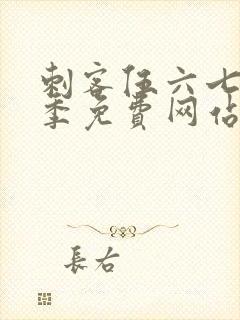 刺客伍六七
季免費网站
長右